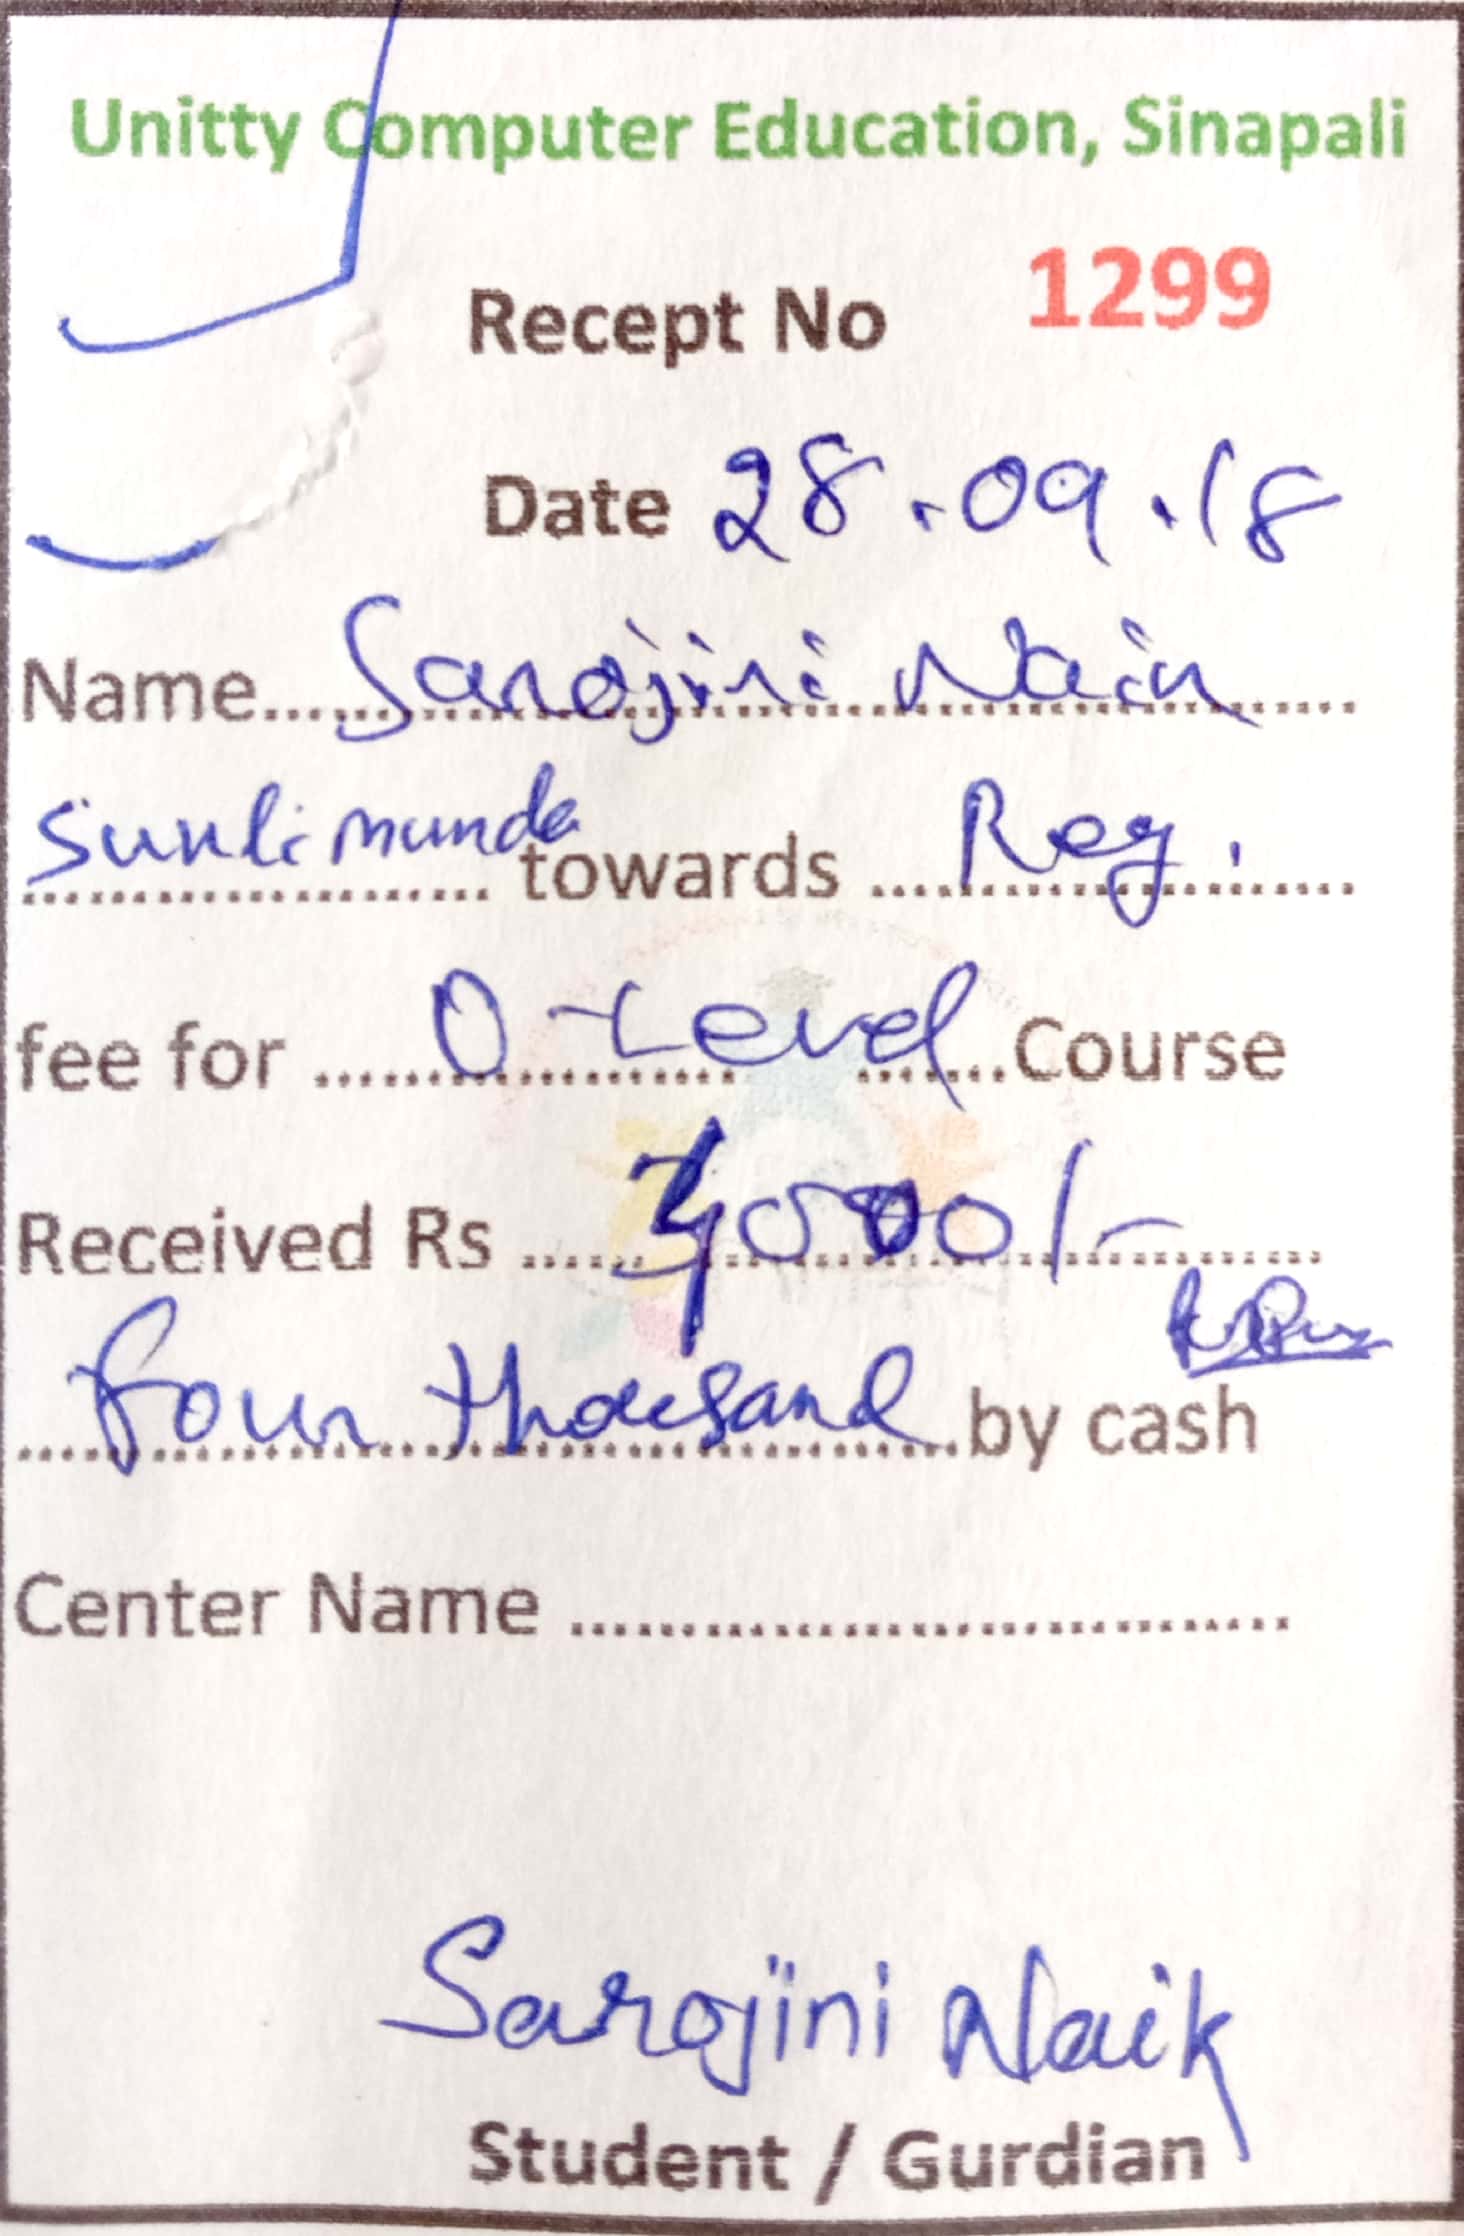 Unitty Computer Education, Sinapali
Recept No 1299
Date 28.09.18
Name... Sarojini Naik
Sunlimunda towards ... Reg.
fee for ... O-Level ... Course
Received Rs ... 4000/-
four thousand by cash
Center Name ...
Sarojini Naik
Student / Gurdian